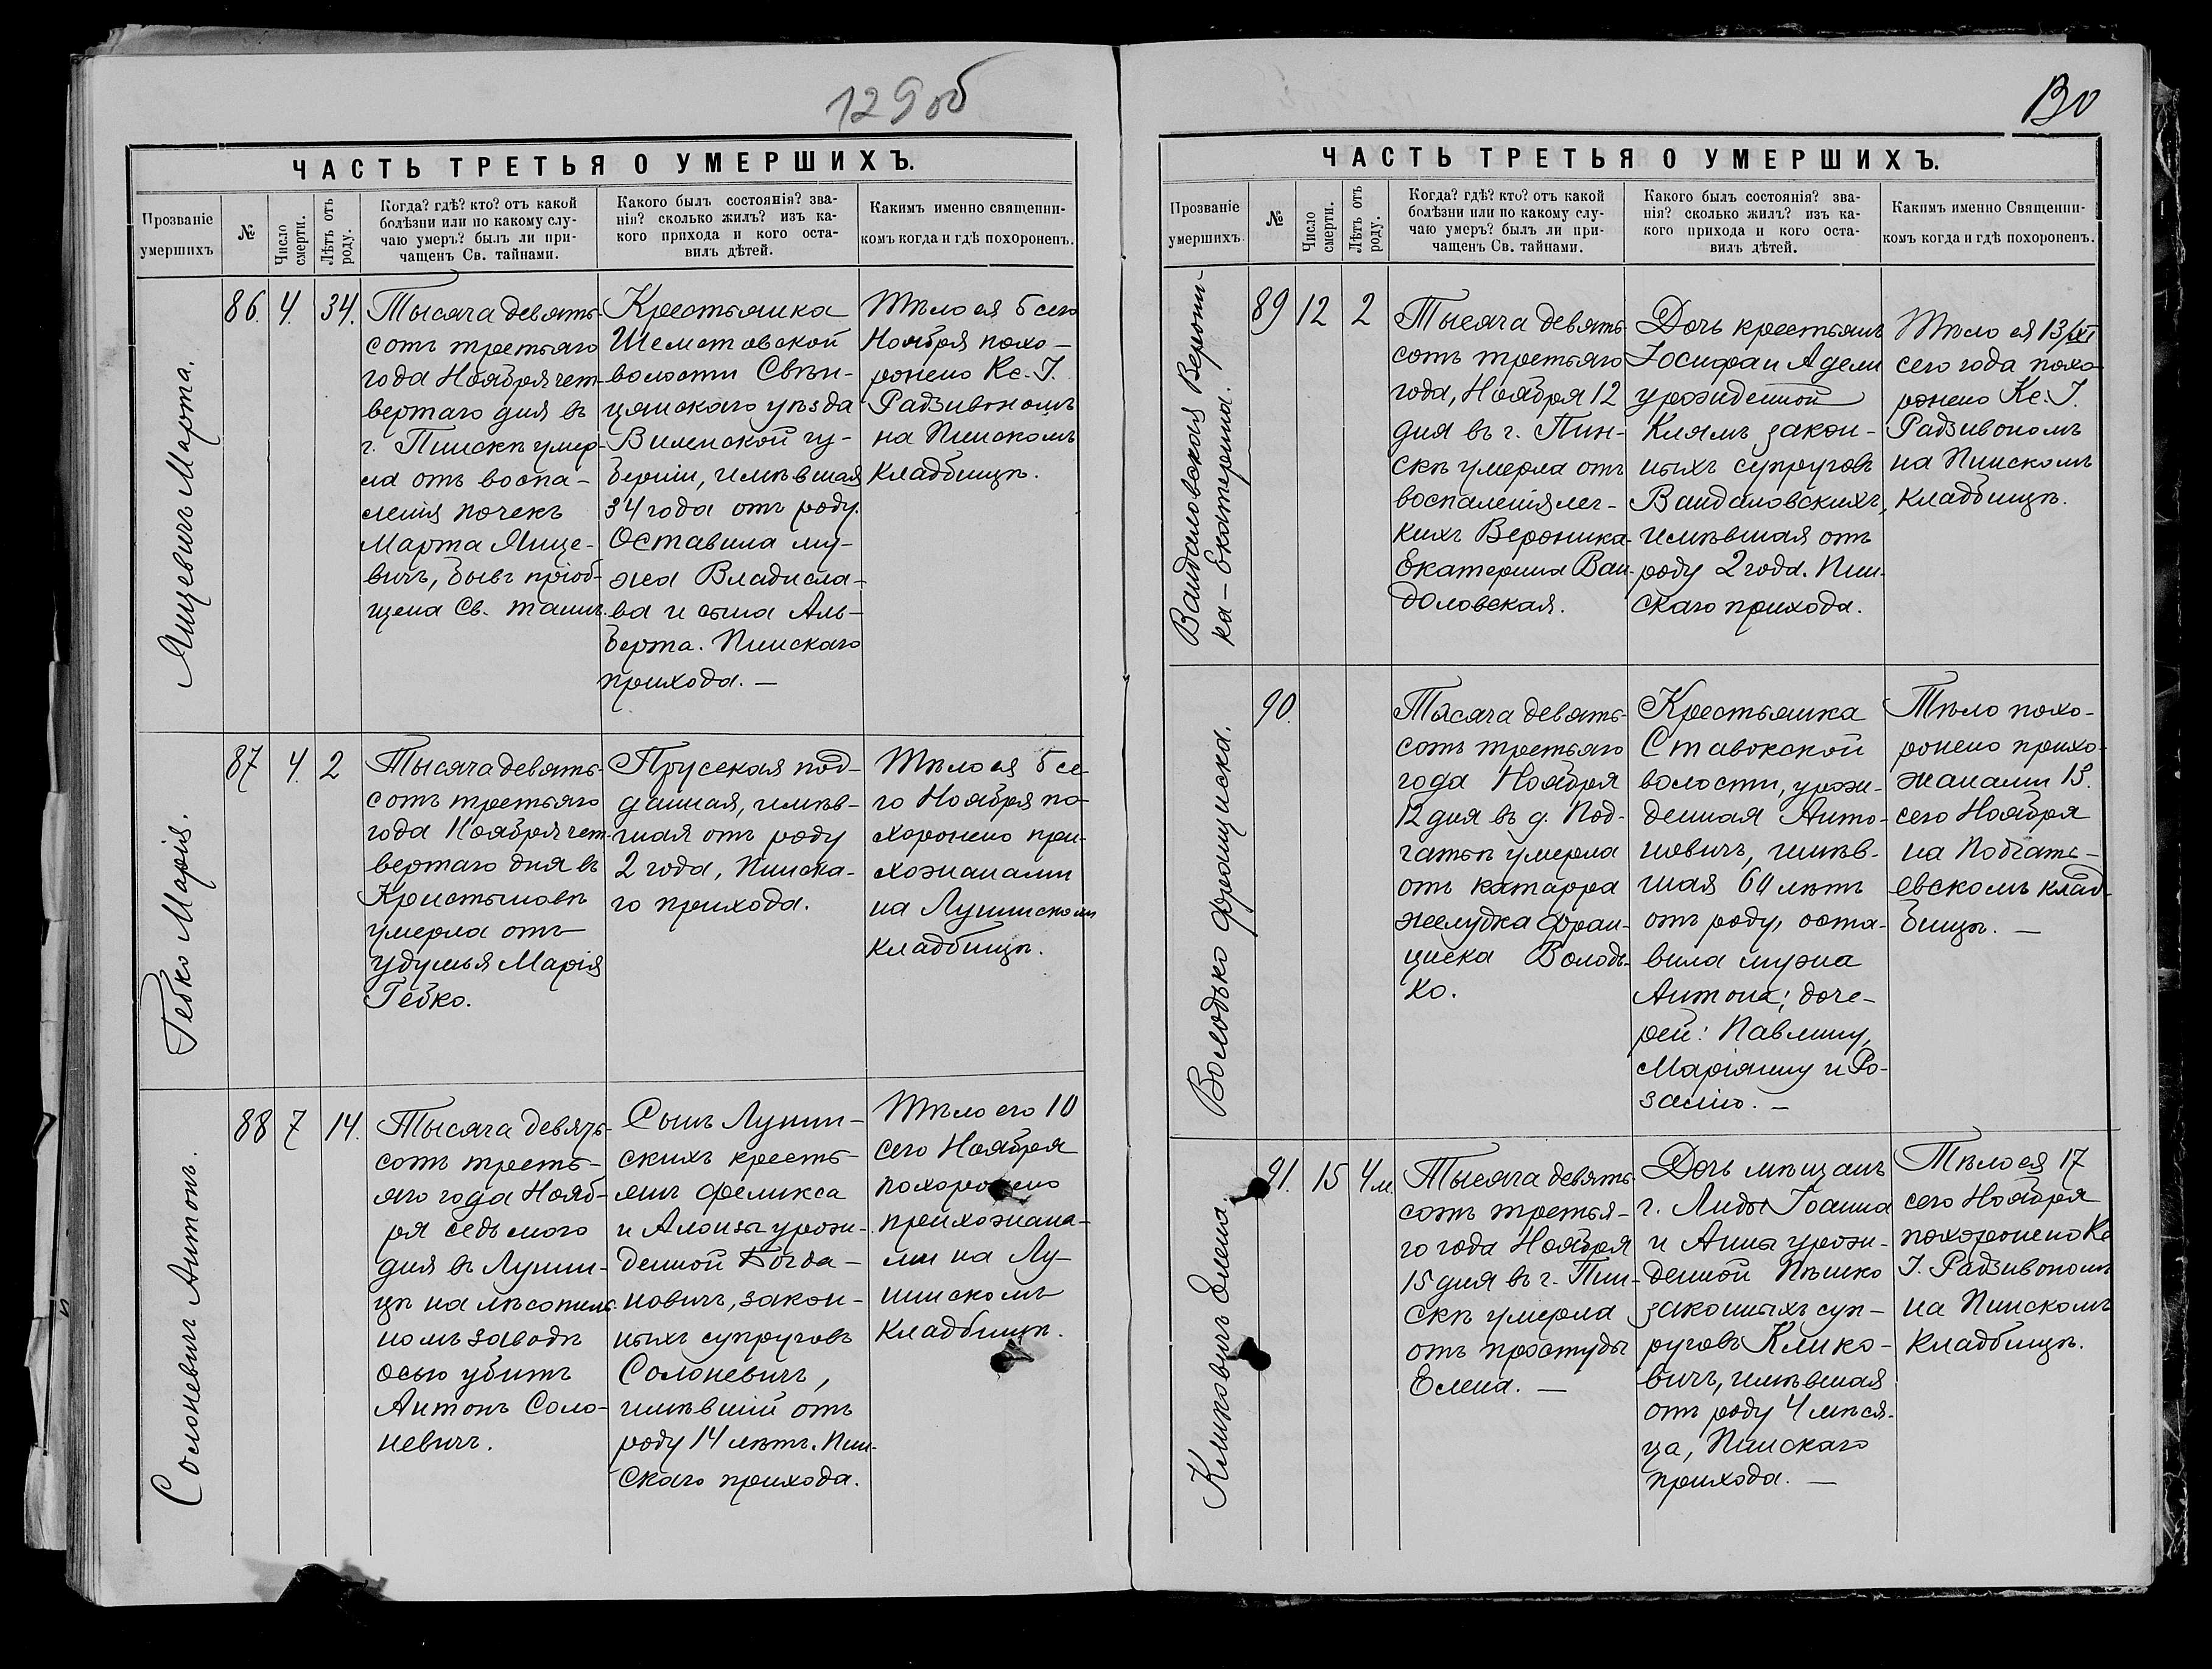 129об
ЧАСТЬ ТРЕТЬЯ О УМЕРШИХЪ.
Прозваніе
умершихъ
№
Число
смерти.
Лѣтъ отъ
роду.
Когда? гдѣ? кто? отъ какой
болѣзни или по какому слу-
чаю умеръ? былъ ли при-
чащенъ Св. тайнами.
Какого былъ состоянія? зва-
нія? сколько жилъ? изъ ка-
кого прихода и кого оста-
вилъ дѣтей.
Какимъ именно священни-
комъ когда и гдѣ похороненъ.
Яицевичъ Марта.
86.
4.
34.
Тысяча девять-
сотъ третьяго
года Ноября чет-
вертаго дня въ
г. Пинскѣ умер-
ла отъ воспа-
ленія почекъ
Марта Яице-
вичъ, бывъ пріоб-
щена Св. таинъ.
Крестьянка
Шеметовской
волости Свѣн-
цянскаго уѣзда
Виленской гу-
берніи, имѣвшая
34 года отъ роду.
Оставила му-
жа Владисла-
ва и сына Аль-
берта. Пинскаго
прихода. —
Тѣло ея 5 сего
Ноября похо-
ронено Кс. І.
Радзивономъ
на Пинскомъ
кладбищѣ.
Гебко Марія.
87
4.
2
Тысяча девять-
сотъ третьяго
года Ноября чет-
вертаго дня въ
Кристыновѣ
умерла отъ
удушья Марія
Гебко.
Прусская под-
данная, имѣв-
шая отъ роду
2 года, Пинска-
го прихода.
Тѣло ея 5 се-
го Ноября по-
хоронено при-
хожанами
на Лунинскомъ
кладбищѣ.
Солоневичъ Антонъ.
88
7
14.
Тысяча девять-
сотъ треть-
яго года Нояб-
ря седьмого
дня въ Лунин-
цѣ на лѣсопиль-
номъ заводѣ
осью убитъ
Антонъ Соло-
невичъ.
Сынъ Лунин-
скихъ кресть-
янъ Феликса
и Алоизы урож-
денной Богда-
новичъ, закон-
ныхъ супруговъ
Солоневичъ,
имѣвшій отъ
роду 14 лѣтъ. Пин-
скаго прихода.
Тѣло его 10
сего Ноября
похоронено
прихожана-
ми на Лу-
нинскомъ
кладбищѣ.
130
ЧАСТЬ ТРЕТЬЯ О УМЕРШИХЪ.
Прозваніе
умершихъ
№
Число
смерти.
Лѣтъ отъ
роду.
Когда? гдѣ? кто? отъ какой
болѣзни или по какому слу-
чаю умеръ? былъ ли при-
чащенъ Св. тайнами.
Какого былъ состоянія? зва-
нія? сколько жилъ? изъ ка-
кого прихода и кого оста-
вилъ дѣтей.
Какимъ именно Священни-
комъ когда и гдѣ похороненъ.
Вандаловская Верони-
ка-Екатерина.
89
12
2
Тысяча девять-
сотъ третьяго
года, Ноября 12
дня въ г. Пин-
скѣ умерла отъ
воспаленія лег-
кихъ Вероника-
Екатерина Ван-
доловская.
Дочь крестьянъ
Іосифа и Адели
урожденной
Клямъ закон-
ныхъ супруговъ
Вандаловскихъ,
имѣвшая отъ
роду 2 года. Пин-
скаго прихода.
Тѣло ея 13/XI
сего года похо-
ронено Кс. І.
Радзивономъ
на Пинскомъ
кладбищѣ.
Володько Франциска.
90.
Тысяча девять-
сотъ третьяго
года Ноября
12 дня въ д. Под-
гатьѣ умерла
отъ катарра
желудка Фран-
циска Володь-
ко.
Крестьянка
Ставокской
волости, урож-
денная Анто-
новичъ, имѣв-
шая 60 лѣтъ
отъ роду, оста-
вила мужа
Антона; доче-
рей: Павлину,
Маріянну и Ро-
залію. —
Тѣло похо-
ронено прихо-
жанами 13
сего Ноября
на Подгать-
евскомъ клад-
бищѣ. —
Климовичъ Елена.
91.
15
4 м.
Тысяча девять-
сотъ третья-
го года Ноября
15 дня въ г. Пин-
скѣ умерла
отъ простуды
Елена. —
Дочь мѣщанъ
г. Лиды Іоанна
и Анны урож-
денной Пѣшко
законныхъ суп-
руговъ Климо-
вичъ, имѣвшая
отъ роду 4 мѣся-
ца, Пинскаго
прихода. —
Тѣло ея 17
сего Ноября
похоронено Кс
І. Радзивономъ
на Пинскомъ
кладбищѣ.